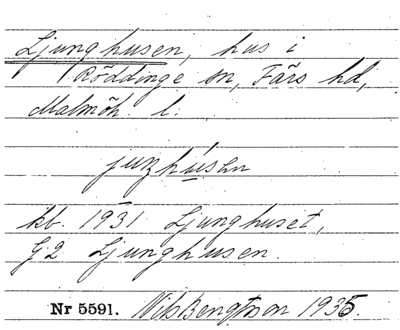 Ljunghusen, hus i
Röddinge sn, Färs hd,
Malmöh. l.
juŋhúsen
kb. 1931 Ljunghuset,
G2 Ljunghusen.
Nr 5591. Nils Bengtsson 1935.